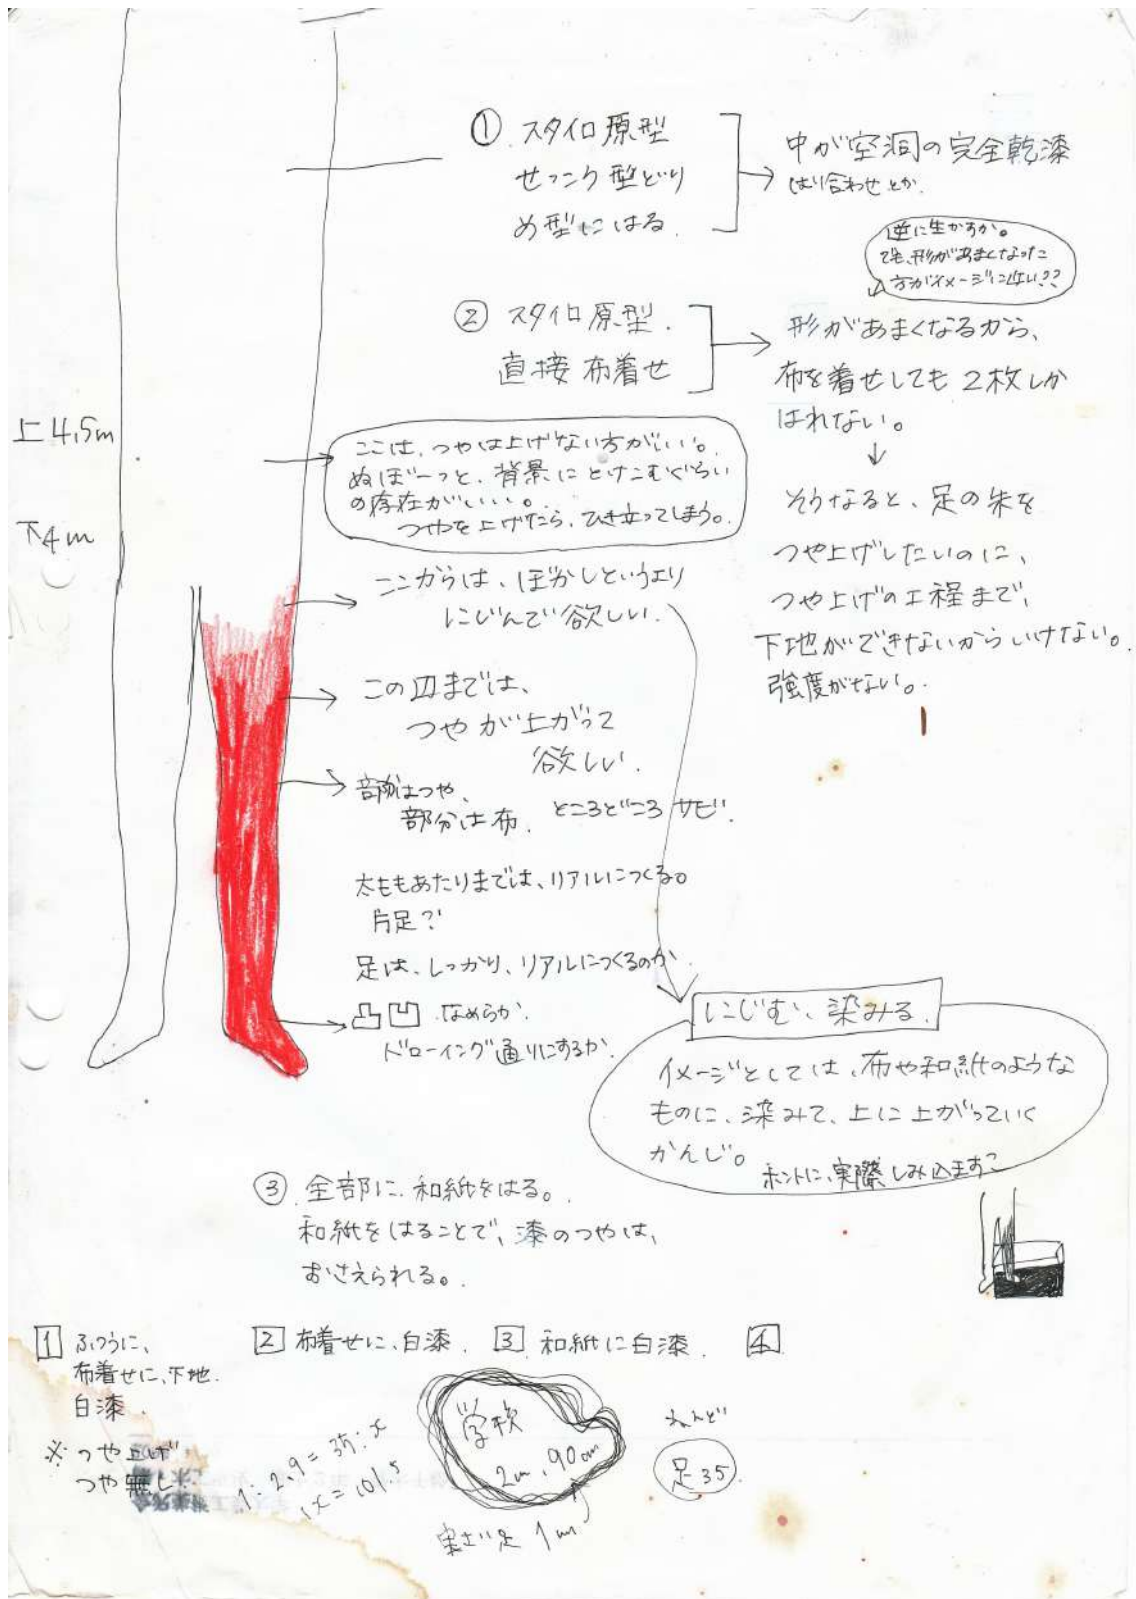 ① スタイロ原型
せっこう型どり
め型にはる.
中が空洞の完全乾漆
はり合わせとか.
逆に生かすか。
でも、形があまくなった
方がイメージに近い??
② スタイロ原型.
直接布着せ
形があまくなるから、
布を着せしても2枚しか
はれない。
↓
そうなると、足の朱を
つや上げしたいのに、
つや上げの工程まで、
下地ができないからいけない。
強度がない。
上4.5m
下4m
ここは、つやは上げない方がいい。
ぬぼーっと、背景にとけこむぐらい
の存在がいい。
つやを上げたら、ひき立ってしまう。
ここからは、ぼかしというより
にじんで欲しい.
この辺までは、
つやが上がって
欲しい.
部分はつや、
部分は布. ところどころサビ.
太ももあたりまでは、リアルにつくる。
片足?
足は、しっかり、リアルにつくるのか.
凸凹 なめらか.
ドローイング通りにするか.
にじむ、染みる.
イメージとしては、布や和紙のような
ものに、染みて、上に上がっていく
かんじ。
ホントに、実際しみ込ますこ
③ 全部に、和紙をはる。
和紙をはることで、漆のつやは、
おさえられる。
1 ふつうに、
布着せに、下地.
白漆.
※つや上げ
つや無し
2 布着せに、白漆.
3 和紙に白漆.
4
1:2.9=35:x
x=101.5
学校
2m.90cm
足 1m
足35.